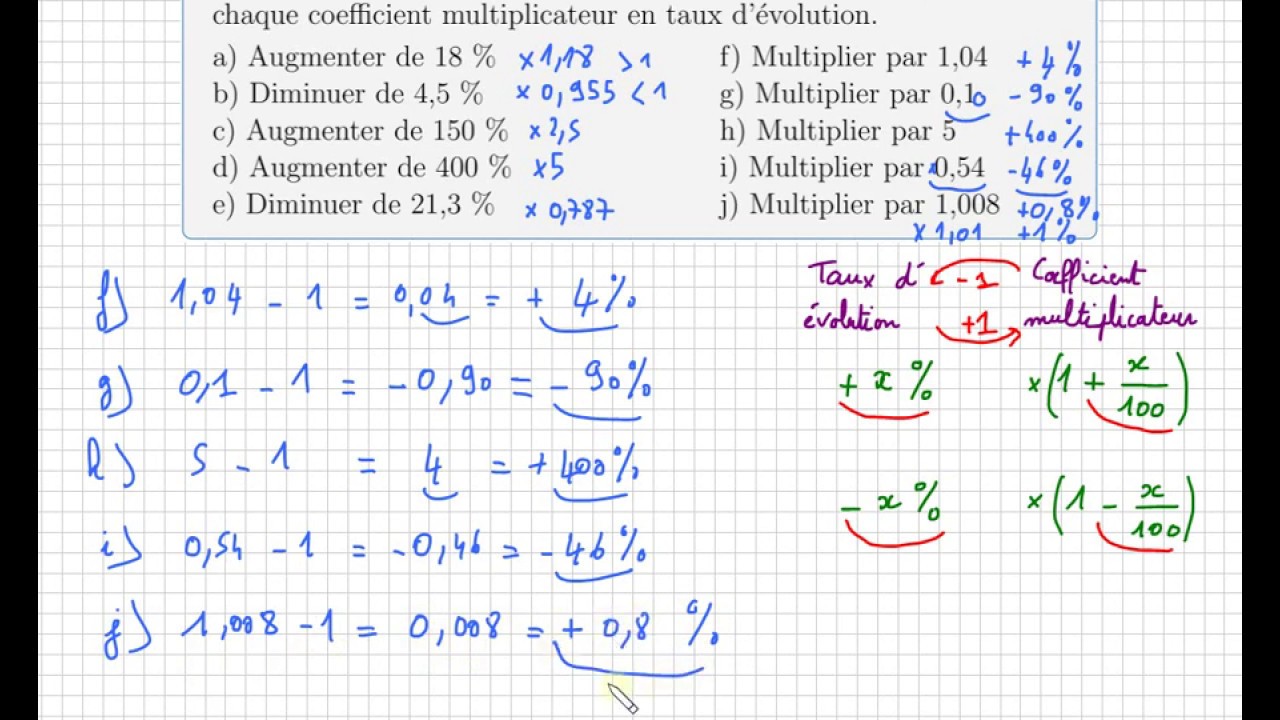 chaque coefficient multiplicateur en taux d'évolution.
a) Augmenter de 18 % ×1,18 >1
b) Diminuer de 4,5 % × 0,955 <1
c) Augmenter de 150 % ×2,5
d) Augmenter de 400 % ×5
e) Diminuer de 21,3 % × 0,787
f) Multiplier par 1,04 +4%
g) Multiplier par 0,10 -90%
h) Multiplier par 5 +400%
i) Multiplier par 0,54 -46%
j) Multiplier par 1,008 +0,8%
×1,01 +1%
f) 1,04 - 1 = 0,04 = + 4%
g) 0,1 - 1 = -0,90 = - 90%
h) 5 - 1 = 4 = +400%
i) 0,54 - 1 = -0,46 = -46%
j) 1,008 - 1 = 0,008 = + 0,8 %
Taux d' -1 Coefficient
évolution +1 multiplicateur
+ x % ×(1 + x/100)
- x % ×(1 - x/100)